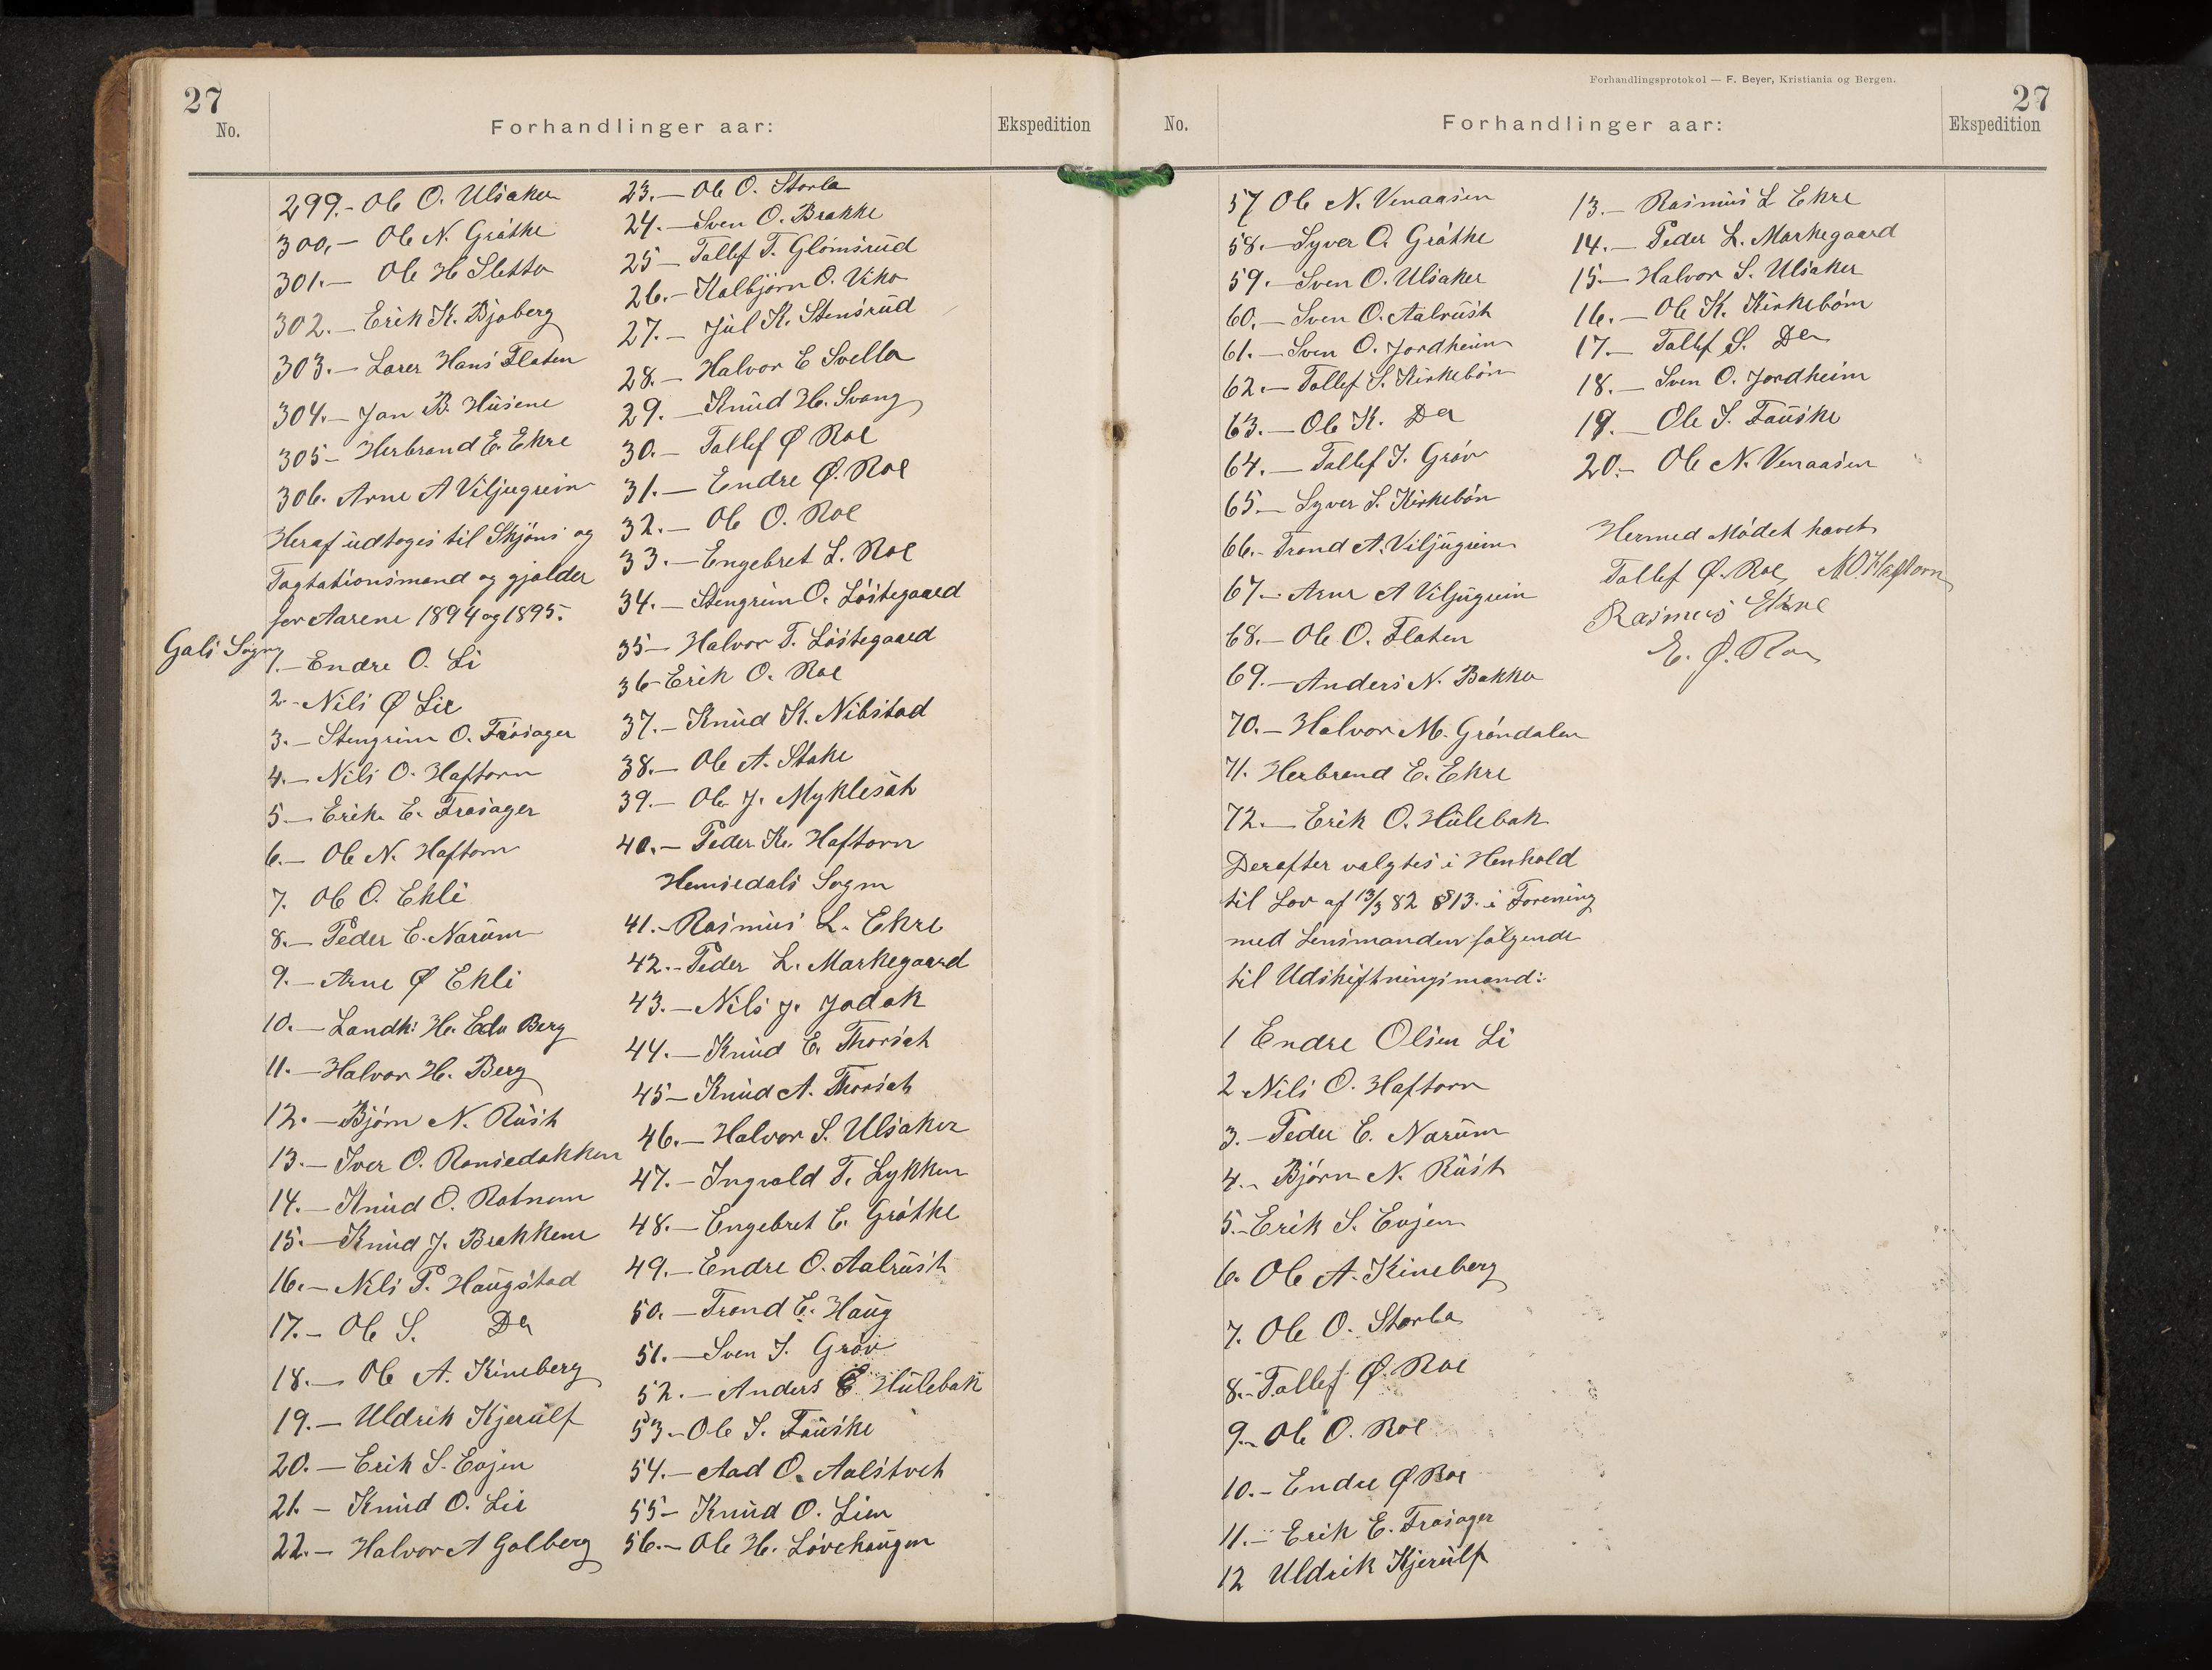 27
No.
Forhandlinger aar:
Ekspedition
299.- Ole O. Ulsaker
300,- Ole N. Grøthe
301.- Ole H Sletto
302.- Erik K. Bjøberg
303.- Lærer Hans Flaten
304.- Jan B. Husene
305- Herbrand E. Ekre
306. Arne A Viljugrein
Heraf udtoges til Skjøns og
Tagtationsmænd og gjælder
for Aarene 1894 og 1895.
Gols Sogn
1.- Endre O. Li
2.- Nils Ø Lie
3.- Stengrim O. Frøsager
4.- Nils O. Haftorn
5.- Erik E. Frøsager
6.- Ole N. Haftorn
7. Ole O. Ekli
8.- Peder E. Narum
9.- Arne Ø Ekli
10.- Landh: H. Edv Berg
11.- Halvor H. Berg
12.- Bjørn N. Rust
13.- Iver O. Ronsedokken
14.- Knud O. Rotnem
15.- Knud J. Brekkene
16.- Nils P. Haugstad
17.- Ole S. Do
18.- Ole A. Kineberg
19.- Uldrik Kjerulf
20.- Erik S. Evjen
21.- Knud O. Lie
22.- Halvor A Golberg
23.- Ole O. Storla
24.- Sven O. Brække
25- Tollef T. Glømsrud
26.- Kolbjørn O. Viko
27.- Jul K. Stensrud
28.- Halvor E Svello
29.- Knud H. Svang
30.- Tollef Ø Roe
31.- Endre Ø. Roe
32.- Ole O. Roe
33.- Engebret L. Roe
34.- Stengrim O. Løstegaard
35- Halvor T. Løstegaard
36- Erik O. Roe
37.- Knud K. Nibstad
38.- Ole A. Stake
39.- Ole J. Myklesæt
40.- Peder K. Haftorn
Hemsedals Sogn
41.- Rasmus L. Ekre
42.- Peder L. Markegaard
43.- Nils J. Jødok
44.- Knud E. Thorset
45- Knud A. Thorset
46.- Halvor S. Ulsaker
47.- Ingvald T. Lykken
48.- Engebret E. Grøthe
49.- Endre O. Aalrust
50.- Trond E. Haug
51.- Sven J. Grøv
52.- Anders E Hulebak
53.- Ole S. Fauske
54.- Aad O. Aalstveit
55- Knud O. Lien
56.- Ole H. Løvehaugen
Forhandlingsprotokol — F. Beyer, Kristiania og Bergen.
27
No.
Forhandlinger aar:
Ekspedition
57 Ole N. Venaasen
58.- Syver O. Grøthe
59.- Sven O. Ulsaker
60.- Sven O. Aalrust
61.- Sven O. Jordheim
62.- Tollef S. Kirkebøn
63.- Ole K. Do
64.- Tollef J. Grøv
65.- Syver S. Kirkebøn
66.- Trond A. Viljugrein
67.- Arne A Viljugrein
68.- Ole O. Flaten
69.- Anders N. Bakko
70.- Halvor M. Grøndalen
71. Herbrand E. Ekre
72.- Erik O. Hulebak
Derefter valgtes i Henhold
til Lov af 13/3 82 §13. i Forening
med Lensmanden følgende
til Udskiftningsmænd:
1 Endre Olsen Li
2 Nils O. Haftorn
3.- Peder E. Narum
4.- Bjørn N. Rust
5.- Erik S. Evjen
6. Ole A. Kineberg
7. Ole O. Storla
8.- Tollef Ø. Roe
9.- Ole O. Roe
10.- Endre Ø Roe
11.- Erik E. Frøsager
12 Uldrik Kjerulf
13.- Rasmus L Ekre
14.- Peder L. Markegaard
15- Halvor S. Ulsaker
16.- Ole K. Kirkebøn
17.- Tollef S. Do
18.- Sven O. Jordheim
19.- Ole S. Fauske
20.- Ole N. Venaasen
Hermed Mødet hævet
Tollef Ø. Roe N.O. Haftorn
Rasmus Ekre
E. Ø. Roe